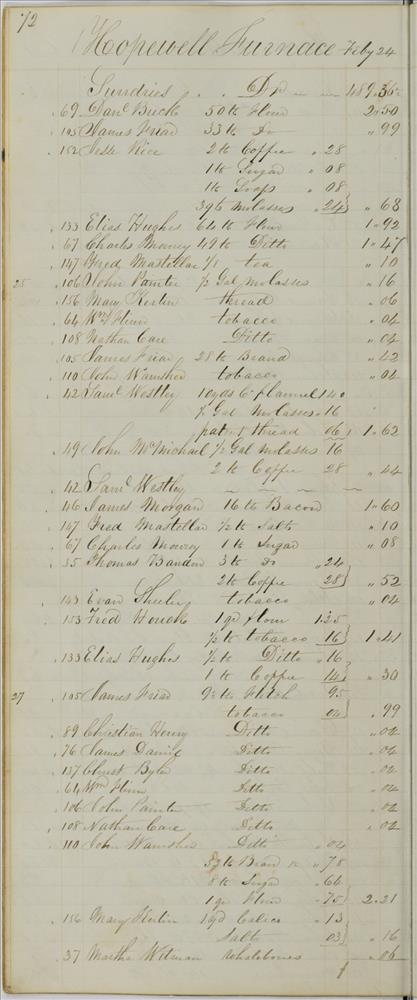 72
Hopewell Furnace Feby 24
Sundries Dr 489.36
69 Danl Buck 50 lb Flour 2.50
105 James Friar 33 lb Do " 99
152 Jesse Rice 2 lb Coffee " 28
1 lb Sugar " 08
1 lb Soap " 08
molasses " 24 " 68
133 Elias Hughes 64 lb Flour 1.92
67 Charles Mowrey 49 lb Ditto 1.47
147 Fred Mastollar tea " 10
25 106 John Painter ½ Gal molasses " 16
156 Mary Kerlin thread " 06
64 Wm Flinn tobacco " 04
108 Nathan Care Ditto " 02
105 James Friar 28 lb Brand " 42
110 John Wamsher tobacco " 02
42 Saml Westley 10 yds C flannel 1.40
½ Gal Molasses " 16
patent thread 06 1.62
49 John McMichael ½ Gal molasses 16
2 lb Coffee 28 " 44
42 Saml Westley
46 James Morgan 16 lb Bacon 1.60
147 Fred Mastollar ½ lb Salts " 10
67 Charles Mowrey 1 lb Sugar " 08
35 Thomas Bandon 3 lb Do " 24
2 lb Coffee 28 " 52
143 Evan Sheeler tobacco " 04
153 Fred Houck 1 qr flour 1.25
½ lb tobacco 16 1.41
133 Elias Hughes ½ lb Ditto " 16
1 lb Coffee 14 " 30
27 105 James Friar 9½ lb Flitch 95
tobacco 04 " 99
89 Christian Henry Ditto " 02
76 James Daniel Ditto " 02
137 Christ Byler Ditto " 02
64 Wm Flinn Ditto " 02
106 John Painter Ditto " 02
108 Nathan Care Ditto " 02
110 John Wamsher Ditto " 04
Bran " 78
8 lb Sugar " 64
1 qr Flour " 75 2.21
156 Mary Kerlin 1 yd Calico " 13
Salts 03 " 16
37 Martha Witman whalebones " 06